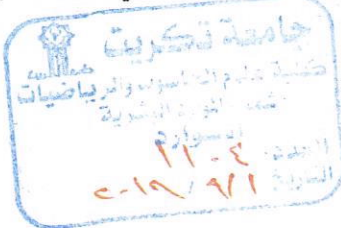 جامعة تكريت
كلية علوم الحاسوب والرياضيات
الموارد البشرية
الصادرة
العدد: ١١٠٤
التاريخ: ٢٠١٩/٩/١